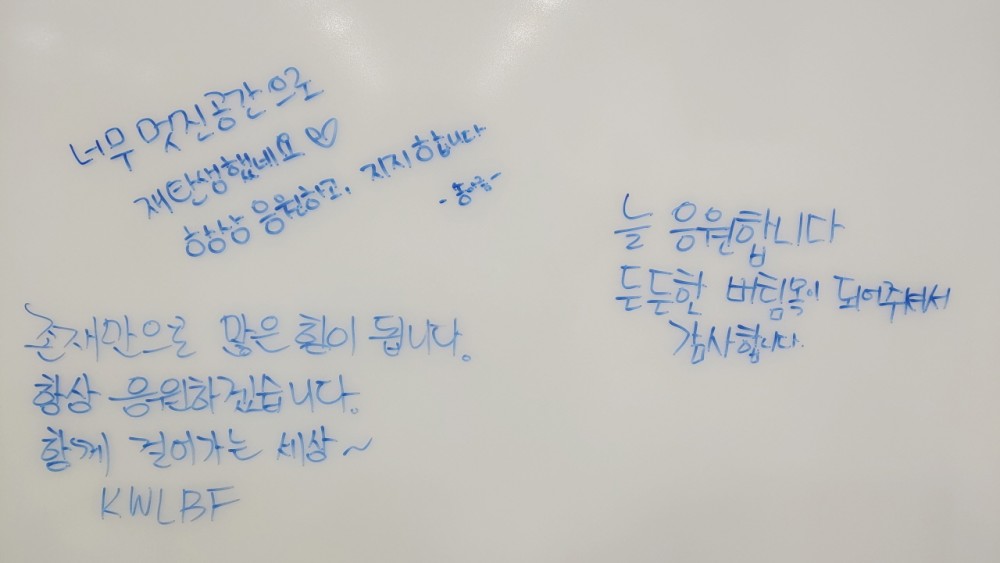 너무 멋진공간으로
재탄생했네요 ♡
항상 응원하고, 지지합니다
존재만으로 많은 힘이 됩니다.
항상 응원하겠습니다.
함께 걸어가는 세상~
KWLBF
늘 응원합니다
든든한 버팀목이 되어주셔서
감사합니다.